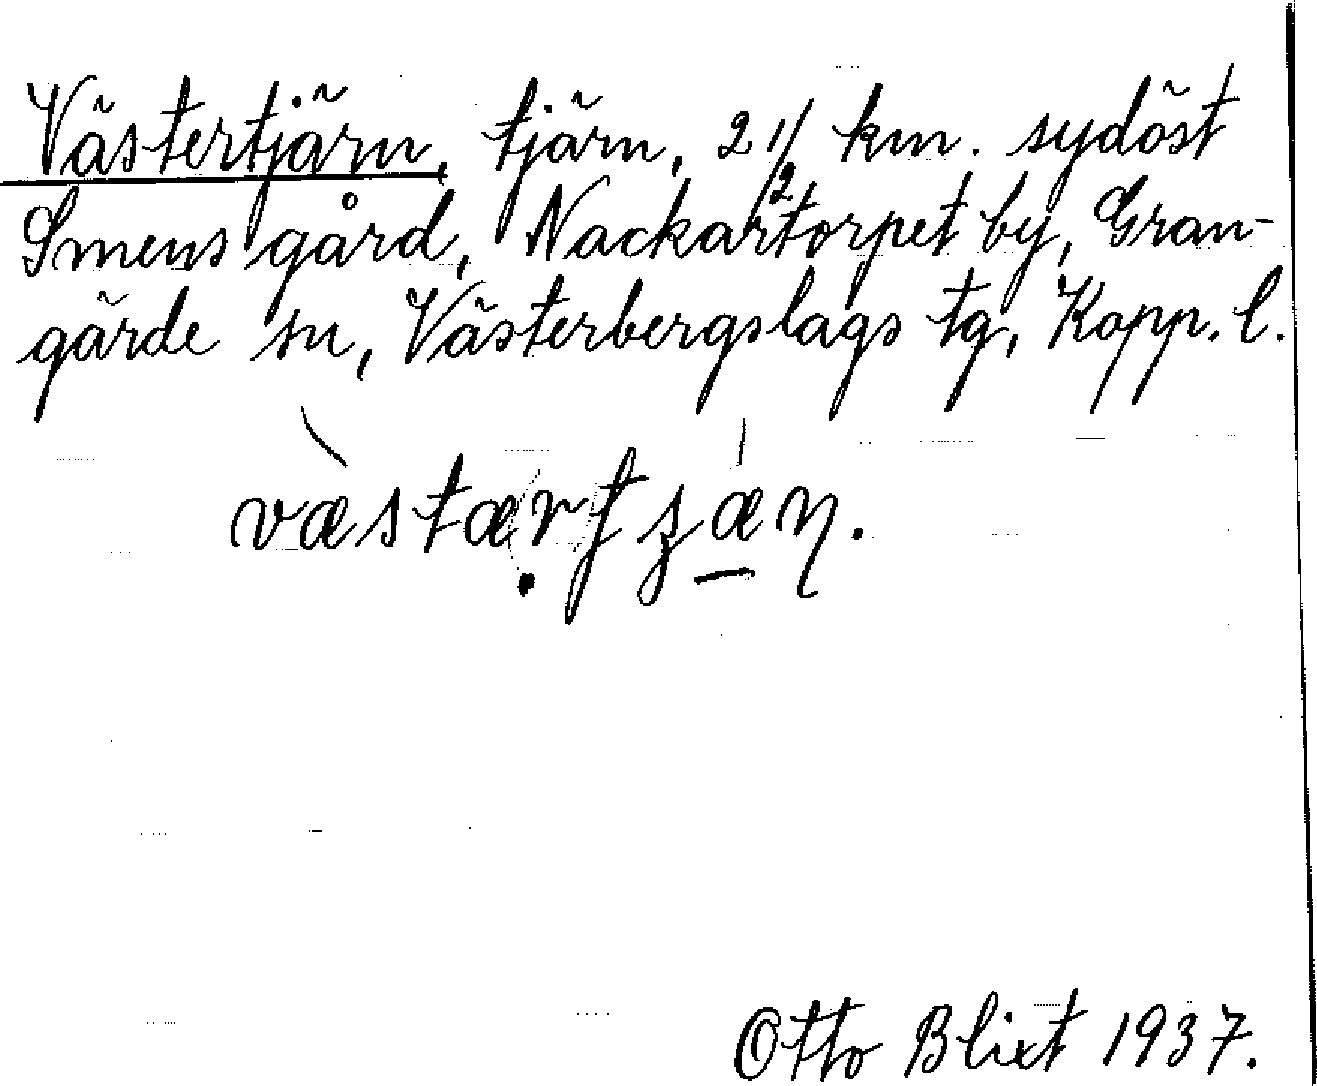 Västertjärn, tjärn, 2 1/2 km. sydöst
Smens gård, Nackartorpet by, Gran-
gärde sn, Västerbergslags tg, Kopp. l.
væstærtʂæɳ.
Otto Blixt 1937.